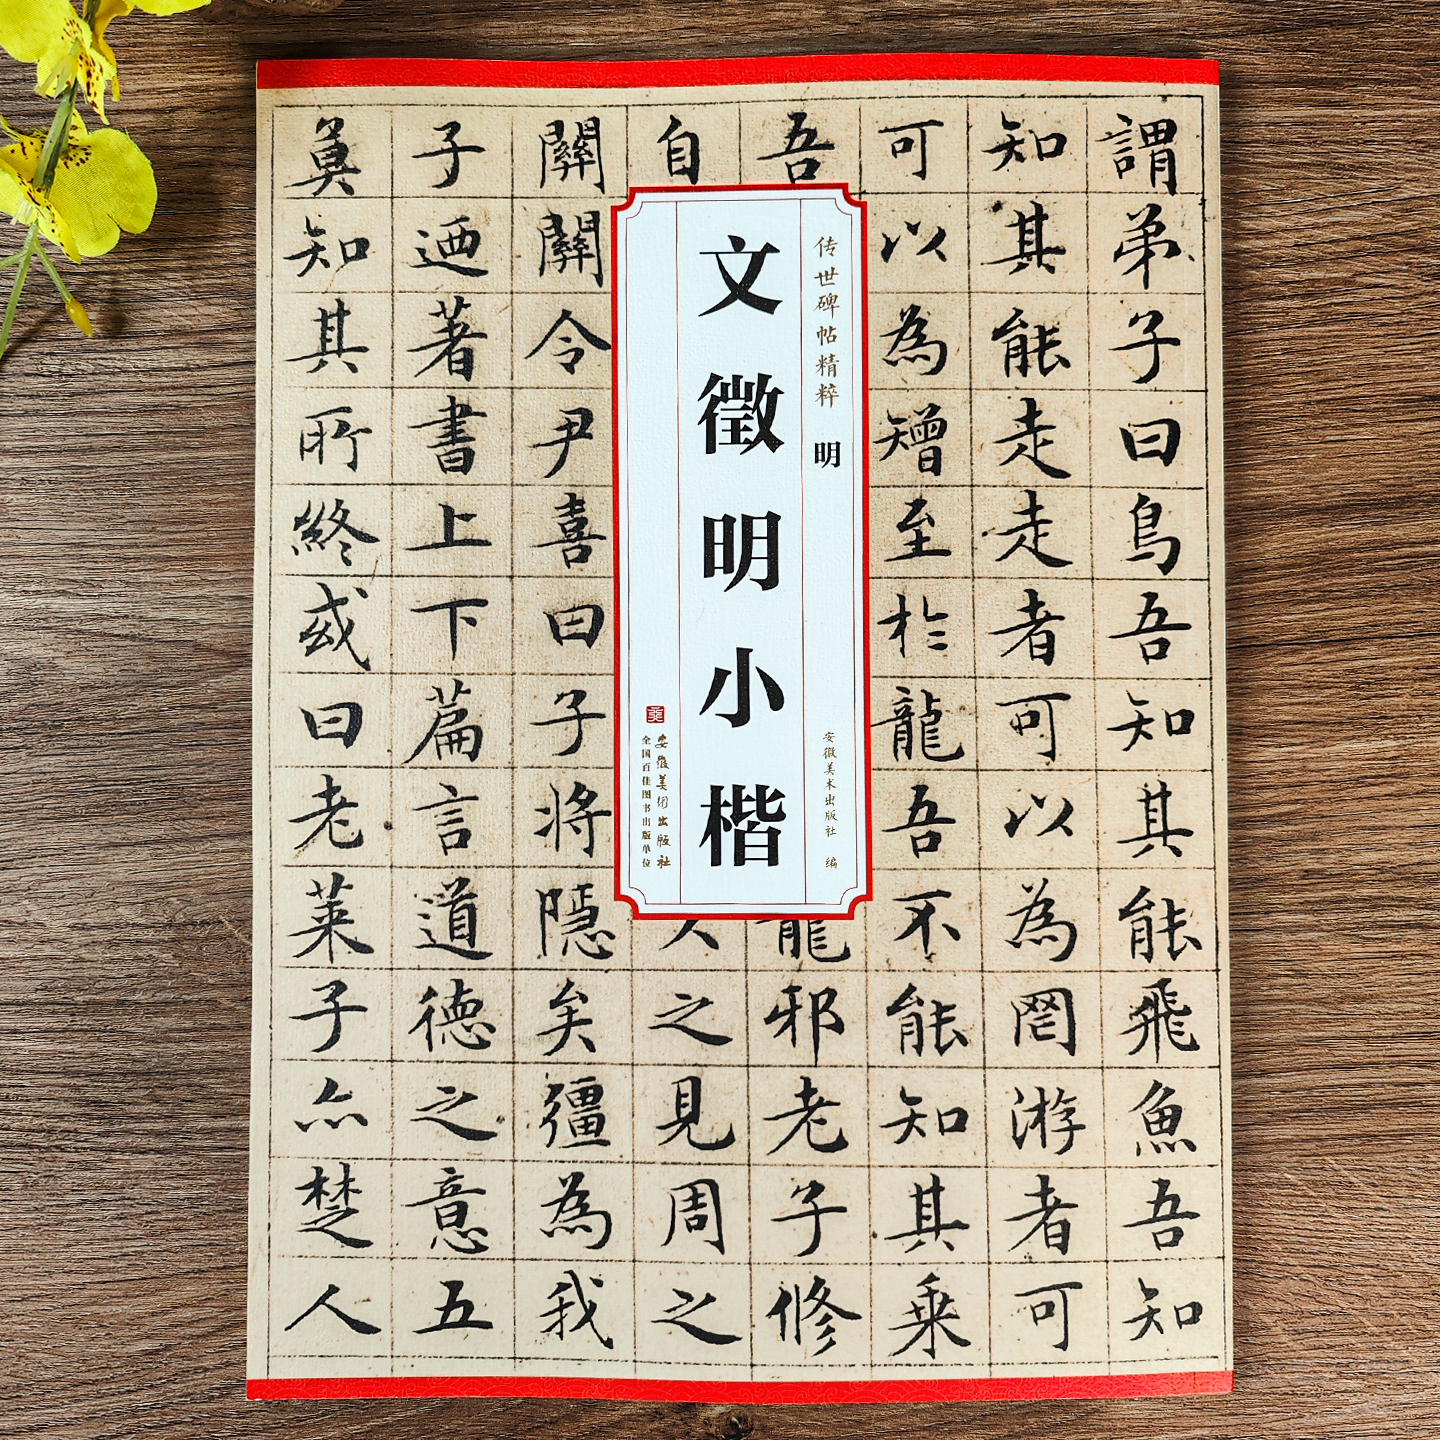 謂弟子曰鳥吾知其能飛魚吾知
知其能走走者可以為罔游者可
可以為矰至於龍吾不能知其乗
吾
龍邪老子修
自
之見周之
關關令尹喜曰子將隱矣彊為我
子迺著書上下篇言道德之意五
莫知其所終或曰老萊子亦楚人
传世碑帖精粹 明
安徽美术出版社 编
文徵明小楷
安徽美術出版社
全国百佳图书出版单位